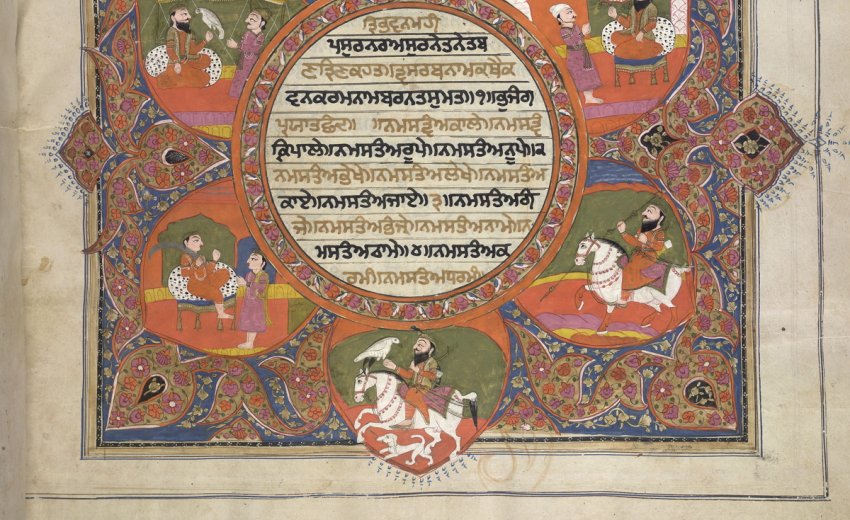 ਤ੍ਰਿਭਵਨਮਹੀ
ਪਸੁਰਨਰਅਸੁਰਨੇਤਨੇਤਬ
ਨਤ੍ਰਿਣਕਹਤ॥ਤ੍ਵਸਰਬਨਾਮਕਥੈਕ
ਵਨਕਰਮਨਾਮਬਰਨਤਸੁਮਤ॥੧॥ਭੁਜੰਗ
ਪ੍ਰਯਾਤਛੰਦ॥ ॥ਨਮਸਤ੍ਵੰਅਕਾਲੇ॥ਨਮਸਤ੍ਵੰ
ਕ੍ਰਿਪਾਲੇ॥ਨਮਸਤੰਅਰੂਪੇ॥ਨਮਸਤੰਅਨੂਪੇ॥੨॥
ਨਮਸਤੰਅਭੇਖੇ॥ਨਮਸਤੰਅਲੇਖੇ॥ਨਮਸਤੰਅ
ਕਾਏ॥ਨਮਸਤੰਅਜਾਏ॥੩॥ਨਮਸਤੰਅਗੰ
ਜੇ॥ਨਮਸਤੰਅਭੰਜੇ॥ਨਮਸਤੰਅਨਾਮੇ॥ਨ
ਮਸਤੰਅਠਾਮੇ॥੪॥ਨਮਸਤੰਅਕ
ਰਮੰ॥ਨਮਸਤੰਅਧਰਮੰ॥